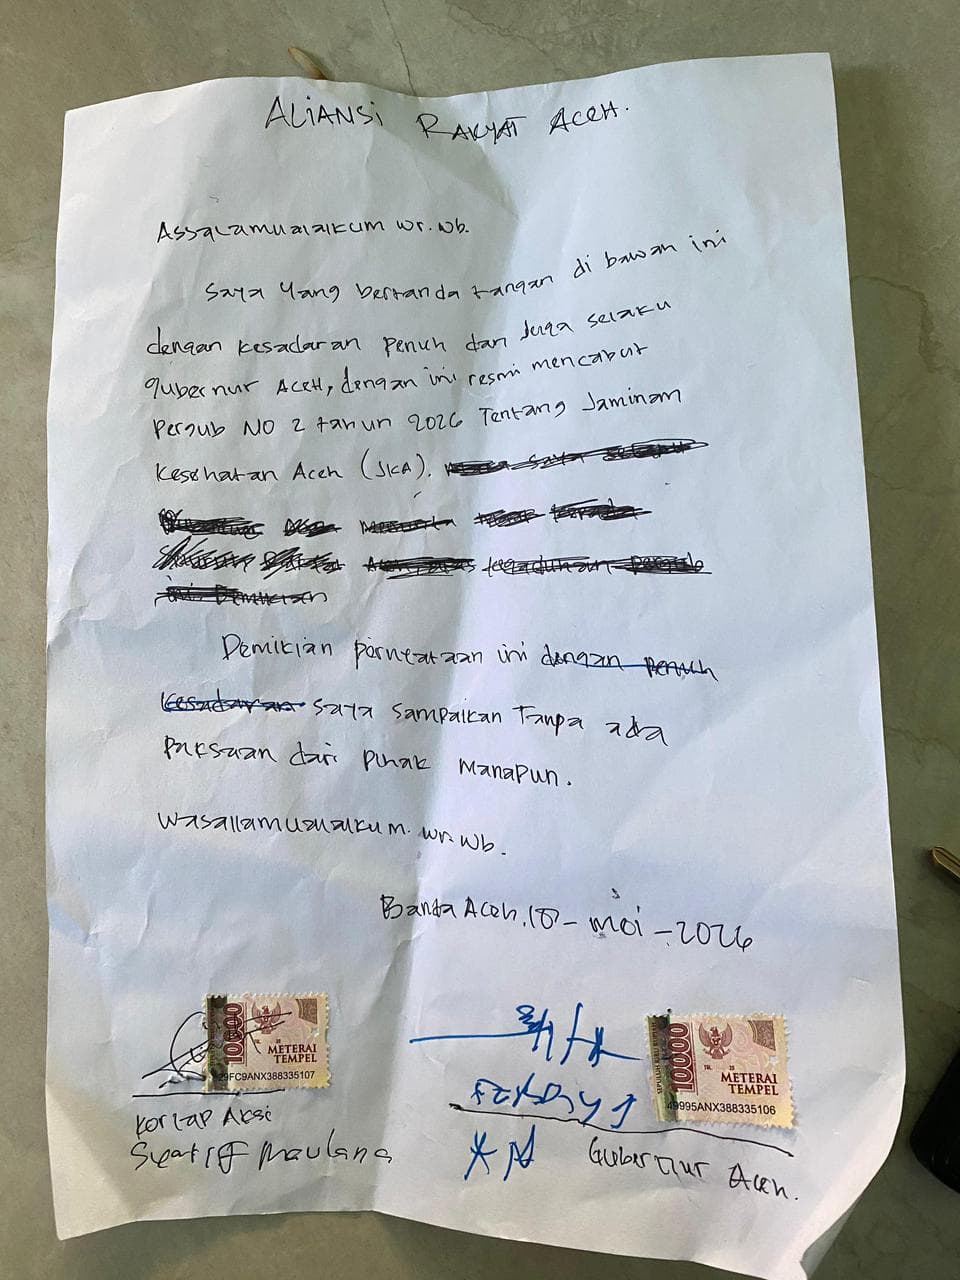 ALiANSi RAKYAT ACEH.
Assalamualaikum wr.wb.
Saya Yang bertanda tangan di bawah ini
dengan kesadaran penuh dan Juga selaku
gubernur ACEH, dengan ini resmi mencabut
Pergub NO 2 tahun 2026 Tentang Jaminam
Kesehatan Aceh (JKA).
Demikian pernyataan ini dengan penuh
kesadaran saya sampaikan Tanpa ada
paksaan dari pihak manapun.
wasallamualaikum. wr. wb.
Banda Aceh, 18 - mei - 2026
10000
METERAI
TEMPEL
29FC9ANX388335107
Kortap Aksi
Syarif Maulana
SEPULUH RIBU RUPIAH
10000
METERAI
TEMPEL
49995ANX388335106
Gubernur Aceh.